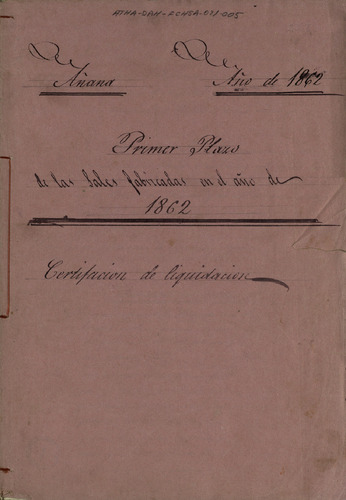 ATHA-DAH-FCNSA-031-005
Añana Año de 1862
Primer Plazo
de las Sales fabricadas en el año de
1862
Certificacion de liquidacion